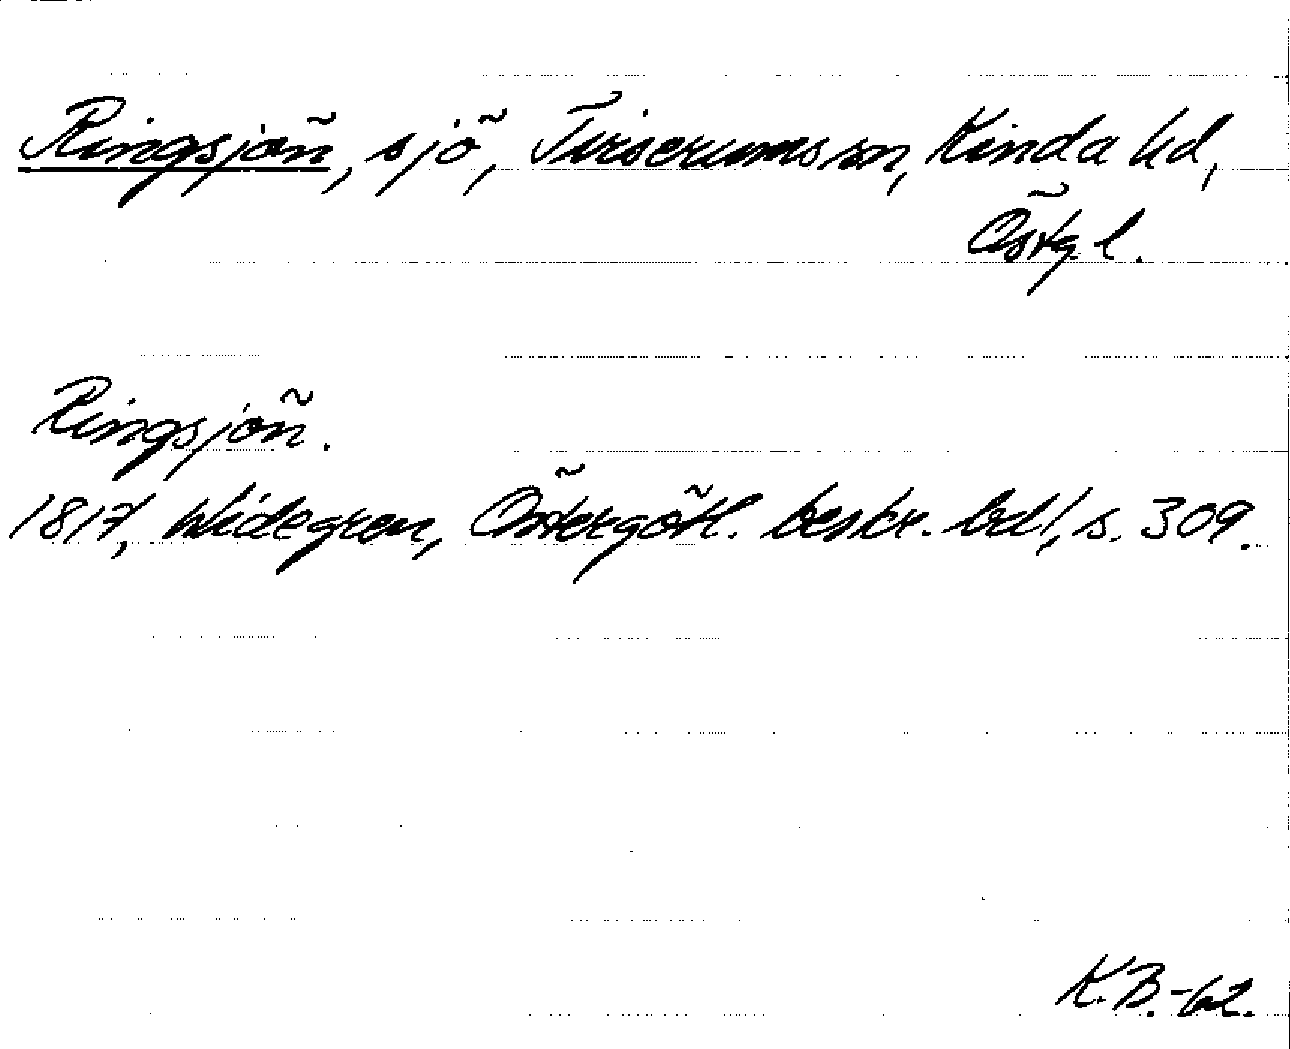 Ringsjön, sjö, Tirserums sn, Kinda hd,
Östg. l.
Ringsjön.
1817, Widegren, Östergötl. beskr. bd I, s. 309.
K.B.-62.